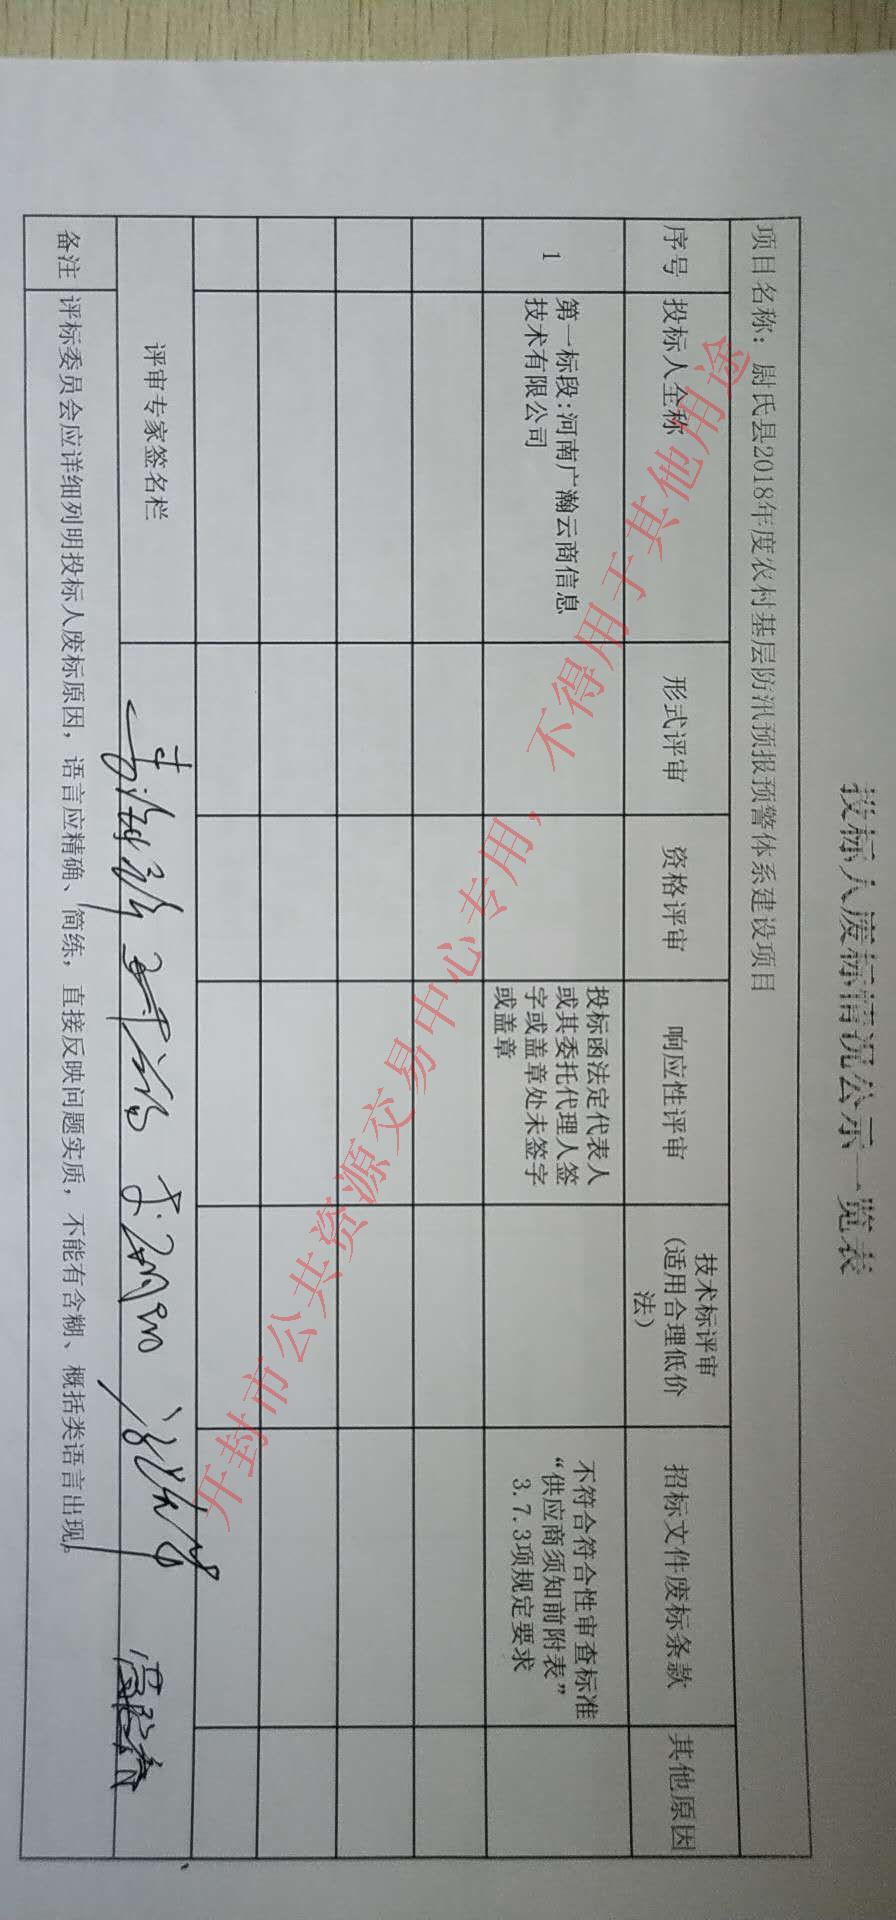 投标人废标情况公示一览表
项目名称：尉氏县2018年度农村基层防汛预报预警体系建设项目
序号 投标人全称 形式评审 资格评审 响应性评审 技术标评审
（适用合理低价
法） 招标文件废标条款 其他原因
1 第一标段:河南广瀚云商信息
技术有限公司
投标函法定代表人
或其委托代理人签
字或盖章处未签字
或盖章
不符合符合性审查标准
“供应商须知前附表”
3.7.3项规定要求
评审专家签名栏
备注 评标委员会应详细列明投标人废标原因，语言应精确、简练，直接反映问题实质，不能有含糊、概括类语言出现。
开封市公共资源交易中心专用，不得用于其他用途